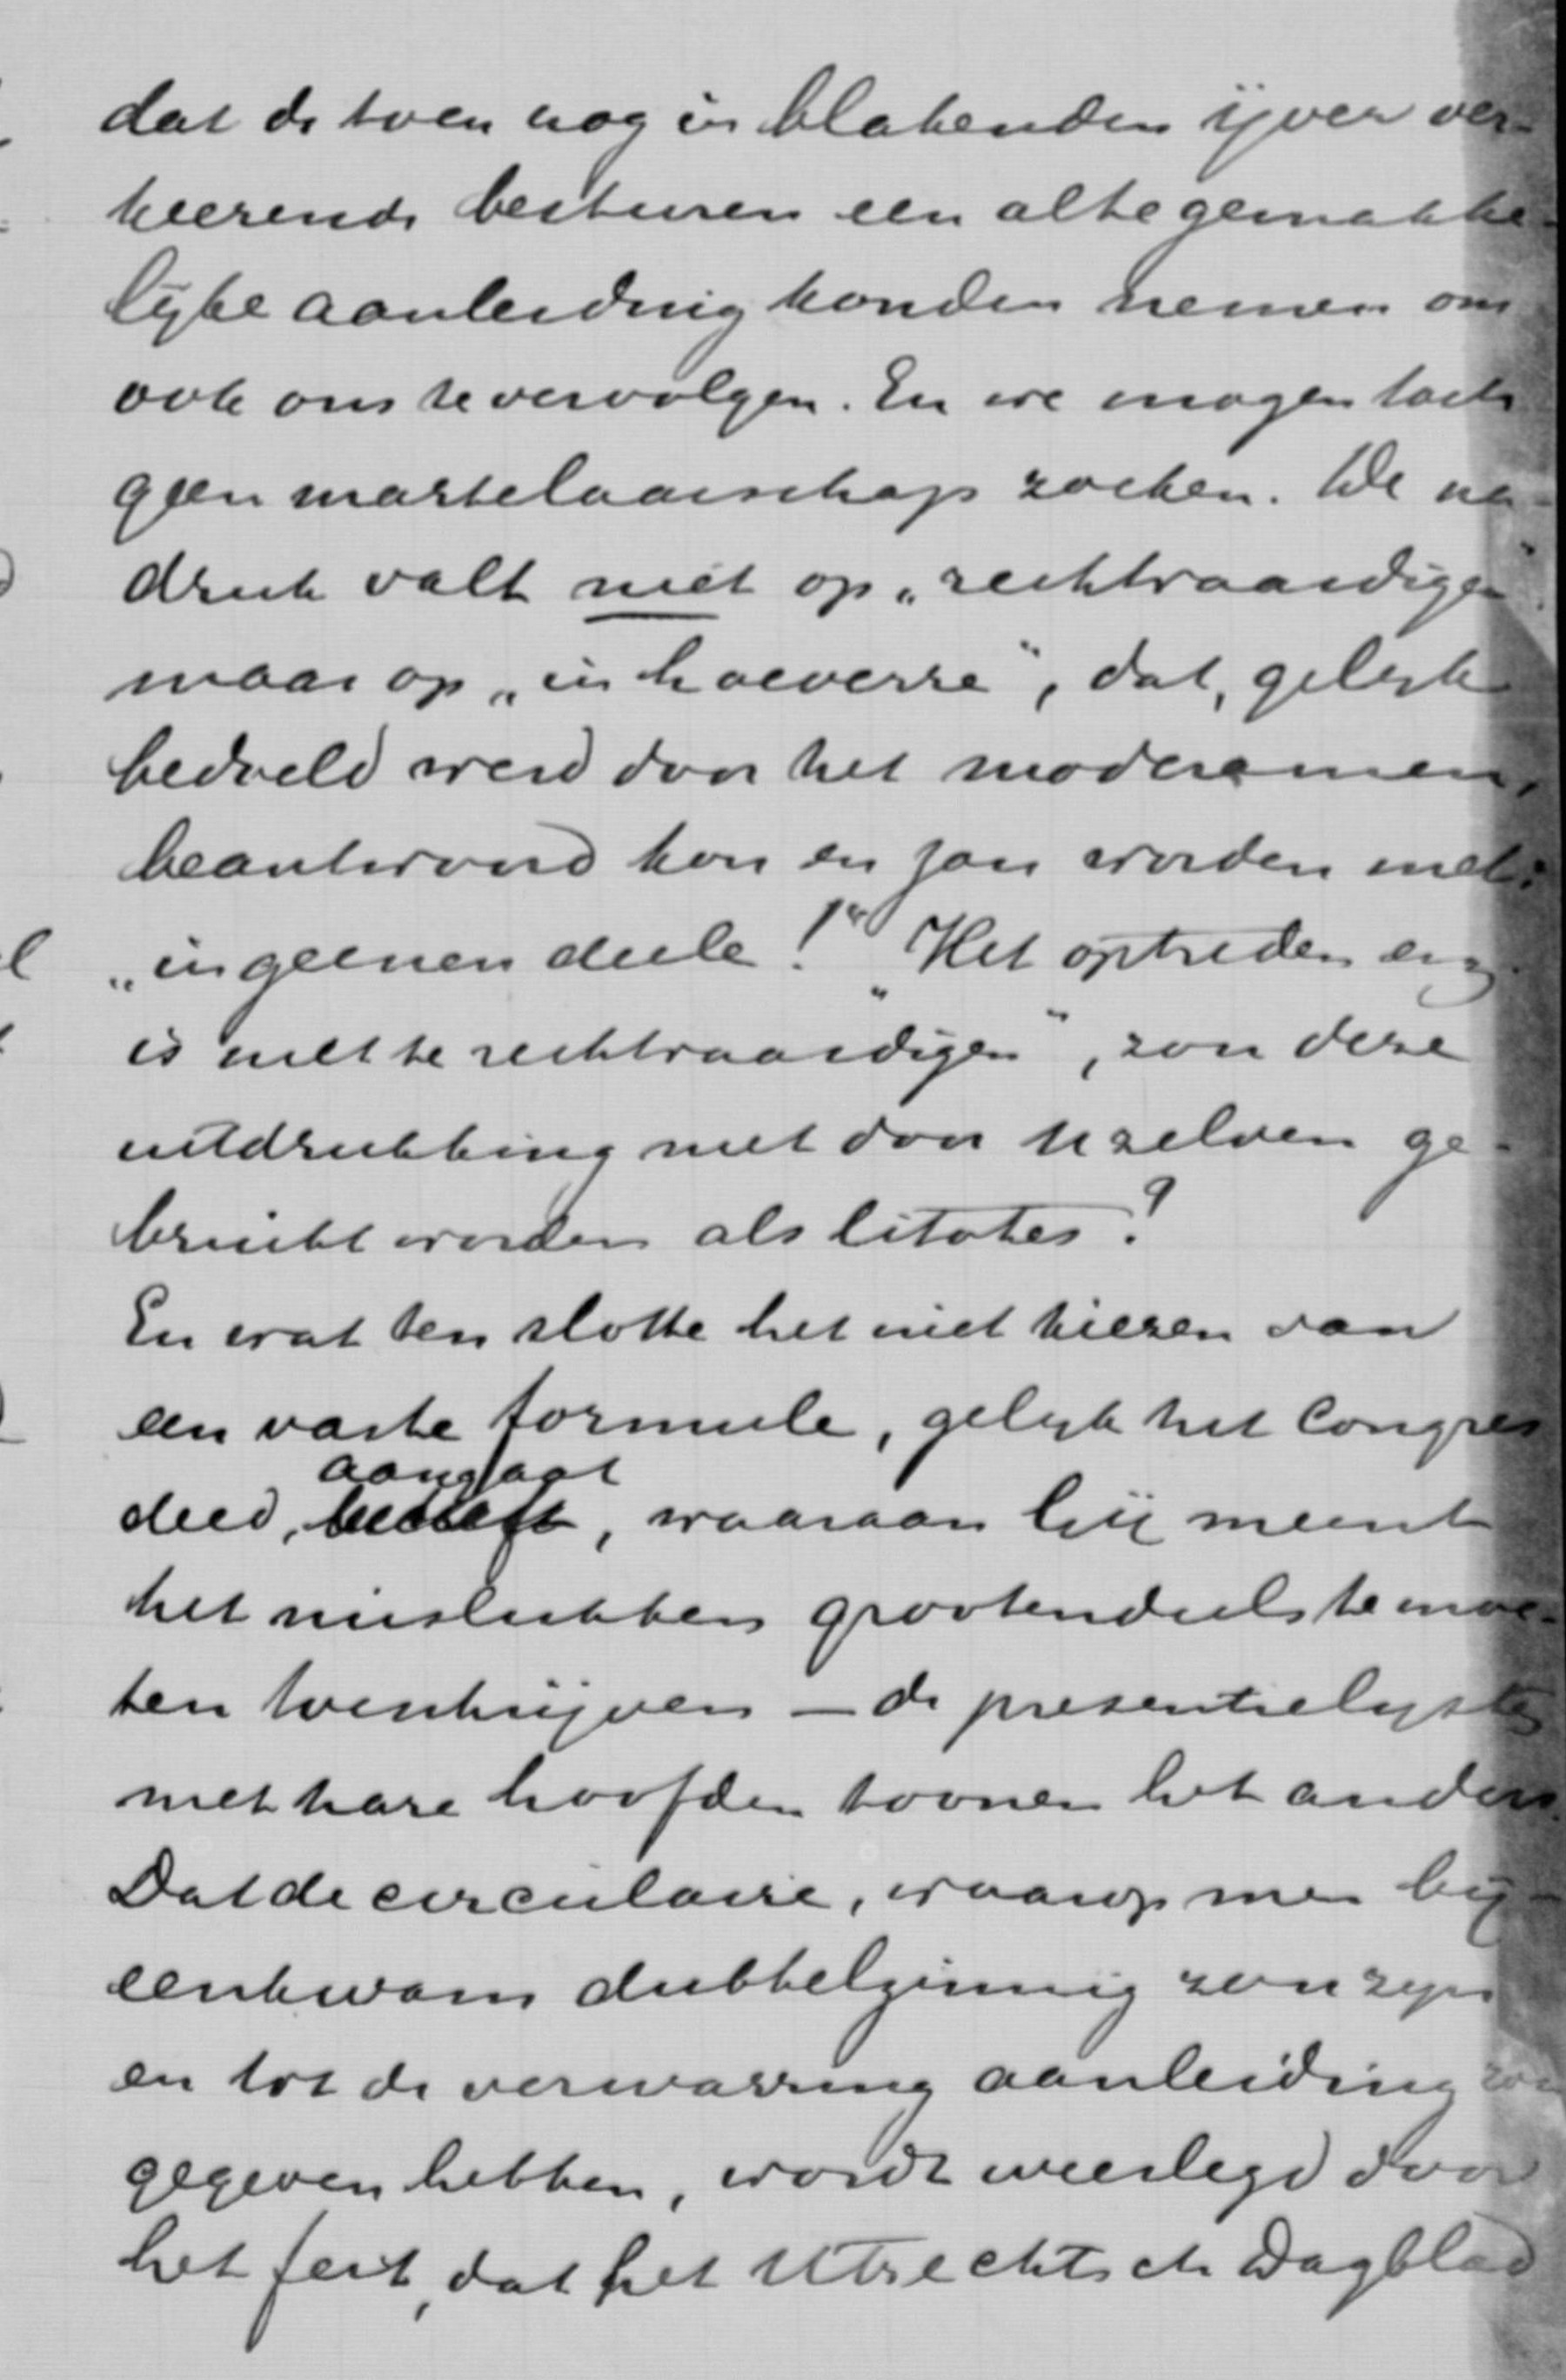 dat de toen nog in blakenden ijver ver-
keerende besturen een alte gemakke-
lyke aanleiding konden nemen om
ook ons te vervolgen. En we mogen toch
geen martelaarschap zoeken. De na-
druk valt niet op „rechtvaardigen"
maar op „in hoeverre", dat, gelyk
bedoeld werd door het moderamen,
beantwoord kon en zou worden met:
„in geenen deele!" Het optreden enz.
is „niet te rechtvaardigen", zou deze
uitdrukking niet door uzelven ge-
bruikt worden als litotes?
En wat ten slotte het niet kiezen van
een vaste formule, gelyk het Congres
aangaat
deed, betreft, waaraan hij meent
het mislukken grootendeels te moe-
ten toeschrijven — de presentielysten
met hare hoofden toonen het anders.
Dat de circulaire, waarop men bij-
eenkwam dubbelzinnig zou zyn
en tot de verwarring aanleiding zou
gegeven hebben, wordt weerlegd door
het feit, dat het Utrechtsch Dagblad